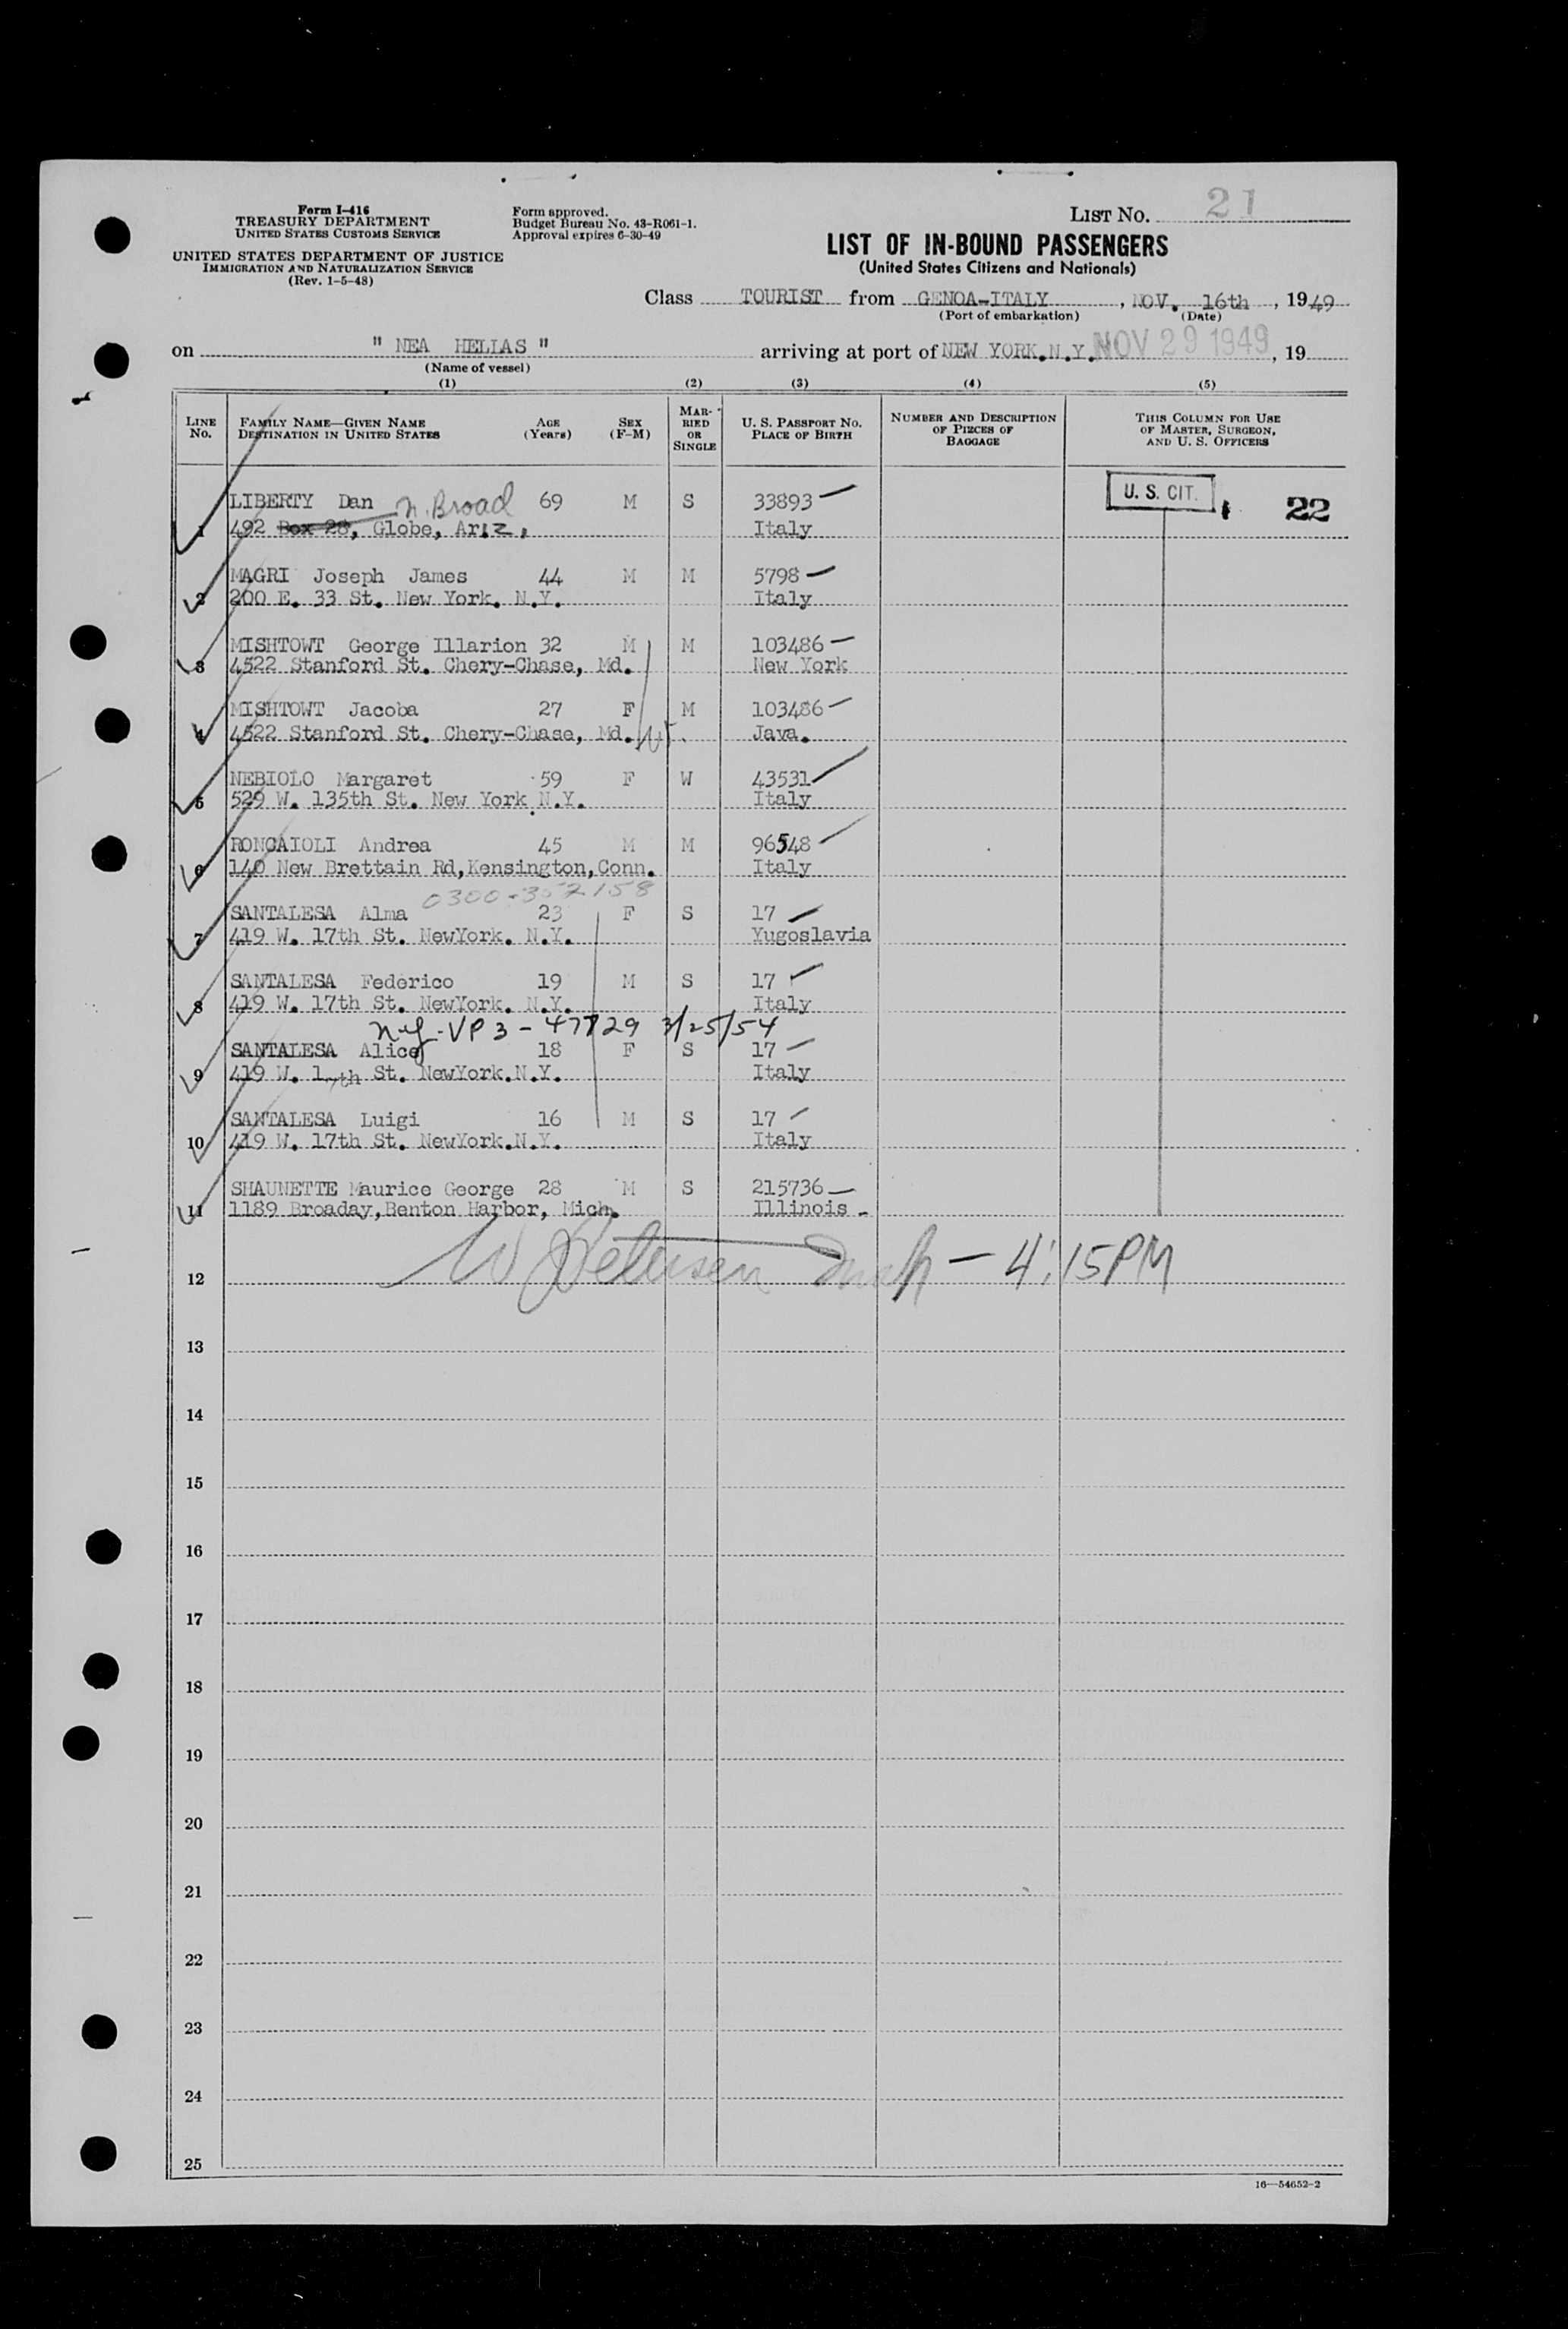 Form I-416
TREASURY DEPARTMENT
UNITED STATES CUSTOMS SERVICE
UNITED STATES DEPARTMENT OF JUSTICE
IMMIGRATION AND NATURALIZATION SERVICE
(Rev. 1-5-48)
Form approved.
Budget Bureau No. 43-R061-1.
Approval expires 6-30-49
LIST NO. 21
LIST OF IN-BOUND PASSENGERS
(United States Citizens and Nationals)
Class TOURIST from GENOA-ITALY, NOV. 16th, 1949
(Port of embarkation) (Date)
on " NEA HELIAS " arriving at port of NEW YORK.N.Y. NOV 29 1949, 19
(Name of vessel)
(1) (2) (3) (4) (5)
LINE NO. FAMILY NAME—GIVEN NAME DESTINATION IN UNITED STATES AGE (Years) SEX (F-M) MARRIED OR SINGLE U. S. PASSPORT NO. PLACE OF BIRTH NUMBER AND DESCRIPTION OF PIECES OF BAGGAGE THIS COLUMN FOR USE OF MASTER, SURGEON, AND U. S. OFFICERS
LIBERTY Dan N. Broad 69 M S 33893 U. S. CIT. 22
1 492 Box 28, Globe, Ariz, Italy
MAGRI Joseph James 44 M M 5798
2 200 E. 33 St. New York. N.Y. Italy
MISHTOWT George Illarion 32 M M 103486
3 4522 Stanford St. Chery-Chase, Md. New York
MISHTOWT Jacoba 27 F M 103486
4 4522 Stanford St. Chery-Chase, Md. Java.
NEBIOLO Margaret 59 F W 43531
5 529 W. 135th St. New York N.Y. Italy
RONCAIOLI Andrea 45 M M 96548
6 140 New Brettain Rd,Kensington,Conn. Italy
0300-352158
SANTALESA Alma 23 F S 17
7 419 W. 17th St. NewYork. N.Y. Yugoslavia
SANTALESA Federico 19 M S 17
8 419 W. 17th St. NewYork. N.Y. Italy
ny-VP3-47729 3/25/54
SANTALESA Alice 18 F S 17
9 419 W. 17th St. NewYork.N.Y. Italy
SANTALESA Luigi 16 M S 17
10 419 W. 17th St. NewYork.N.Y. Italy
SHAUNETTE Maurice George 28 M S 215736
11 1189 Broaday,Benton Harbor, Mich. Illinois
W Petersen - 4:15PM
12
13
14
15
16
17
18
19
20
21
22
23
24
25
16—54652-2